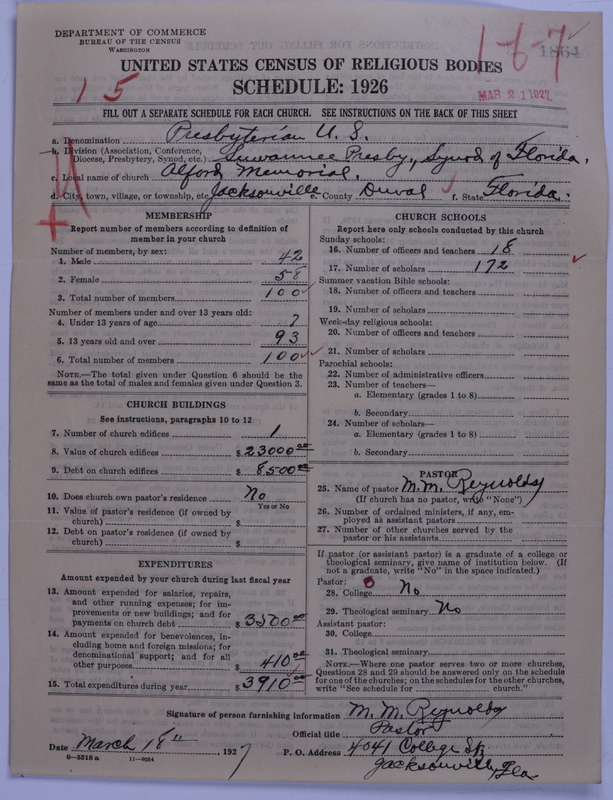 DEPARTMENT OF COMMERCE
BUREAU OF THE CENSUS
WASHINGTON
1-6-7
1864
15
MAR 21 1927
UNITED STATES CENSUS OF RELIGIOUS BODIES
SCHEDULE: 1926
FILL OUT A SEPARATE SCHEDULE FOR EACH CHURCH. SEE INSTRUCTIONS ON THE BACK OF THIS SHEET
a. Denomination Presbyterian U. S.
b. Division (Association, Conference, Diocese, Presbytery, Synod, etc.) Suwannee Presby., Synod of Florida.
c. Local name of church Alford Memorial.
d. City, town, village, or township, etc. Jacksonville e. County Duval f. State Florida.
MEMBERSHIP
Report number of members according to definition of
member in your church
Number of members, by sex:
1. Male 42
2. Female 58
3. Total number of members 100
Number of members under and over 13 years old:
4. Under 13 years of age 7
5. 13 years old and over 93
6. Total number of members 100
NOTE.—The total given under Question 6 should be the
same as the total of males and females given under Question 3.
CHURCH BUILDINGS
See instructions, paragraphs 10 to 12
7. Number of church edifices 1
8. Value of church edifices $ 23000 00
9. Debt on church edifices $ 8500 00
10. Does church own pastor's residence No
Yes or No
11. Value of pastor's residence (if owned by
church) $
12. Debt on pastor's residence (if owned by
church) $
EXPENDITURES
Amount expended by your church during last fiscal year
13. Amount expended for salaries, repairs,
and other running expenses; for im-
provements or new buildings; and for
payments on church debt $ 3500 00
14. Amount expended for benevolences, in-
cluding home and foreign missions; for
denominational support; and for all
other purposes $ 410 00
15. Total expenditures during year $ 3910 00
CHURCH SCHOOLS
Report here only schools conducted by this church
Sunday schools:
16. Number of officers and teachers 18
17. Number of scholars 172
Summer vacation Bible schools:
18. Number of officers and teachers
19. Number of scholars
Week-day religious schools:
20. Number of officers and teachers
21. Number of scholars
Parochial schools:
22. Number of administrative officers
23. Number of teachers—
a. Elementary (grades 1 to 8)
b. Secondary
24. Number of scholars—
a. Elementary (grades 1 to 8)
b. Secondary
PASTOR
25. Name of pastor M. M. Reynolds
(If church has no pastor, write "None")
26. Number of ordained ministers, if any, em-
ployed as assistant pastors
27. Number of other churches served by the
pastor or his assistants
If pastor (or assistant pastor) is a graduate of a college or
theological seminary, give name of institution below. (If
not a graduate, write "No" in the space indicated.)
Pastor:
28. College No
29. Theological seminary No
Assistant pastor:
30. College
31. Theological seminary
NOTE.—Where one pastor serves two or more churches,
Questions 28 and 29 should be answered only on the schedule
for one of the churches; on the schedules for the other churches,
write "See schedule for church."
Signature of person furnishing information M. M. Reynolds
Official title Pastor
Date March 18th, 1927
P. O. Address 4041 College St.
Jacksonville, Fla
8-5518 a 11-9034